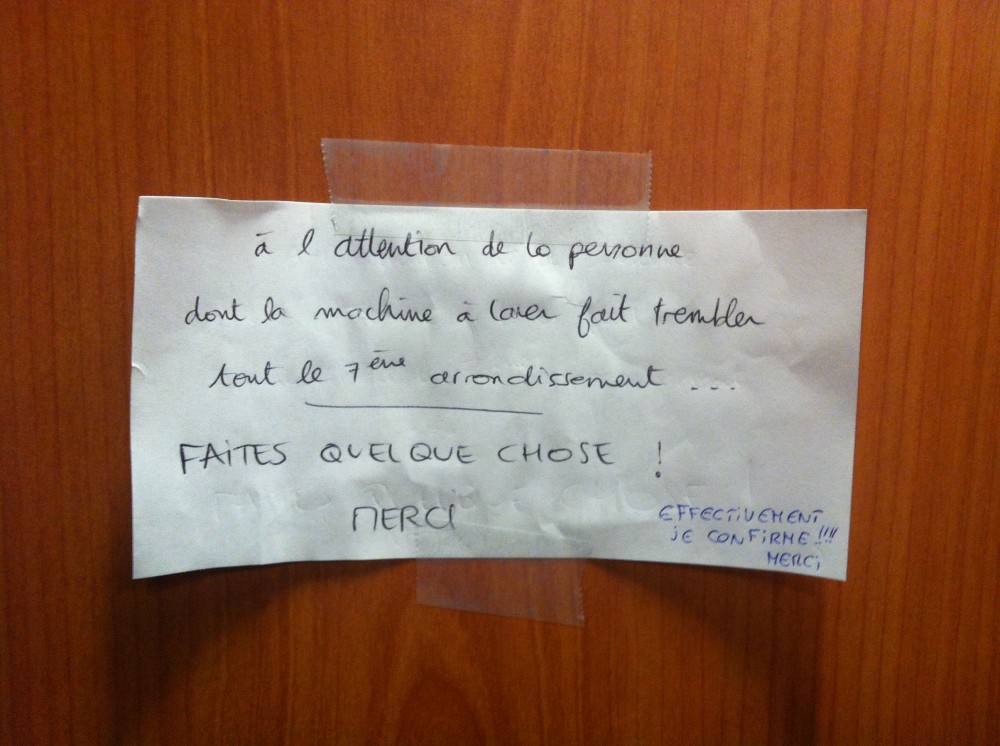 à l'attention de la personne
dont la machine à laver fait trembler
tout le 7ème arrondissement ...
FAITES QUELQUE CHOSE !
MERCI
EFFECTIVEMENT
JE CONFIRME !!!!
MERCI